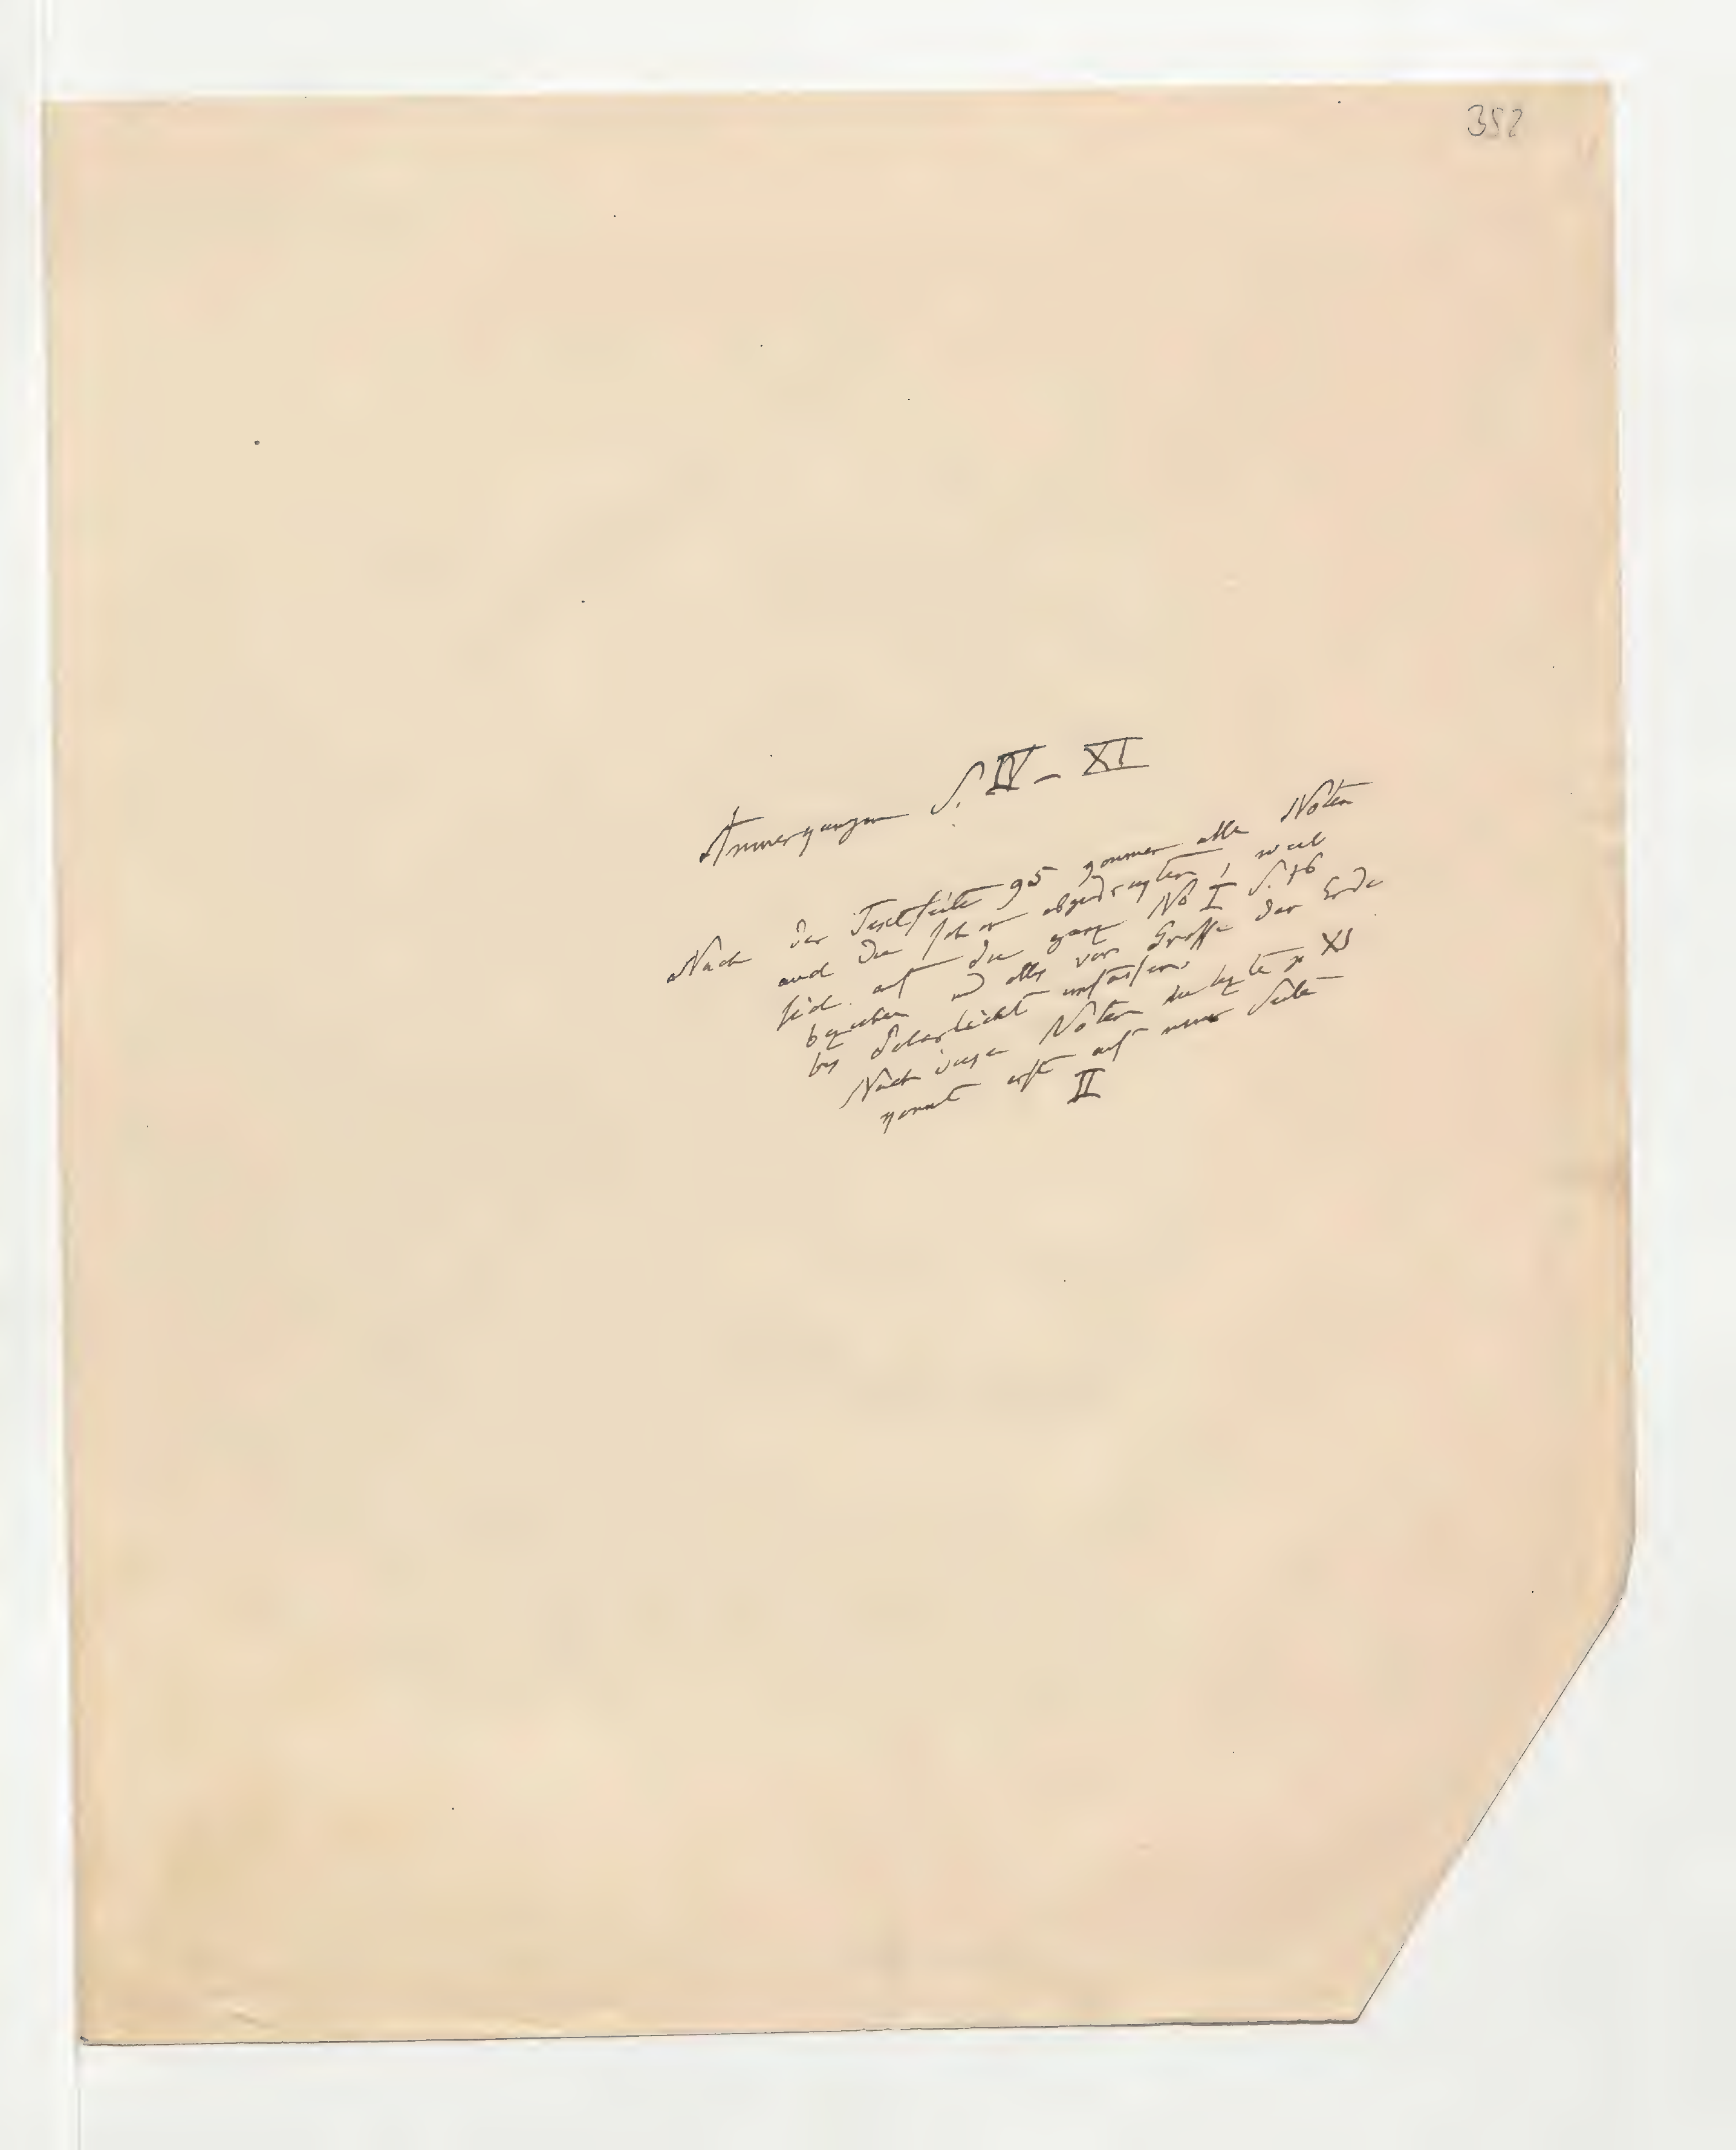 352
Anmerkungen S. IV – XI
Nach der Textseite 95 kommen alle Noten
auch die schon abgedrukten, weil
sich auf die ganze No I S. 16
beziehen und alles von Grösse der Erde
bis Polarlicht umfassen
Nach diesen Noten die lezte p XI
komt erst auf neuer Seite
II